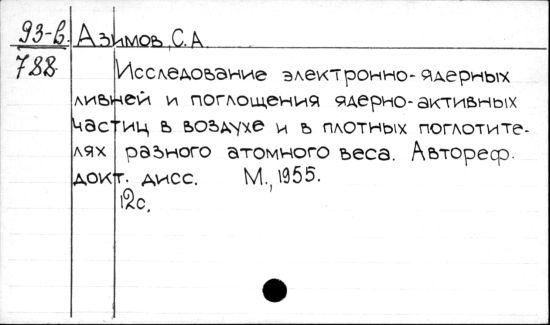 93-6 Азимов, С.А.
788
Исследование электронно-ядерных
ливней и поглощения ядерно-активных
частиц в воздухе и в плотных поглотите-
лях разного атомного веса. Автореф.
докт. дисс. М., 1955.
12с.